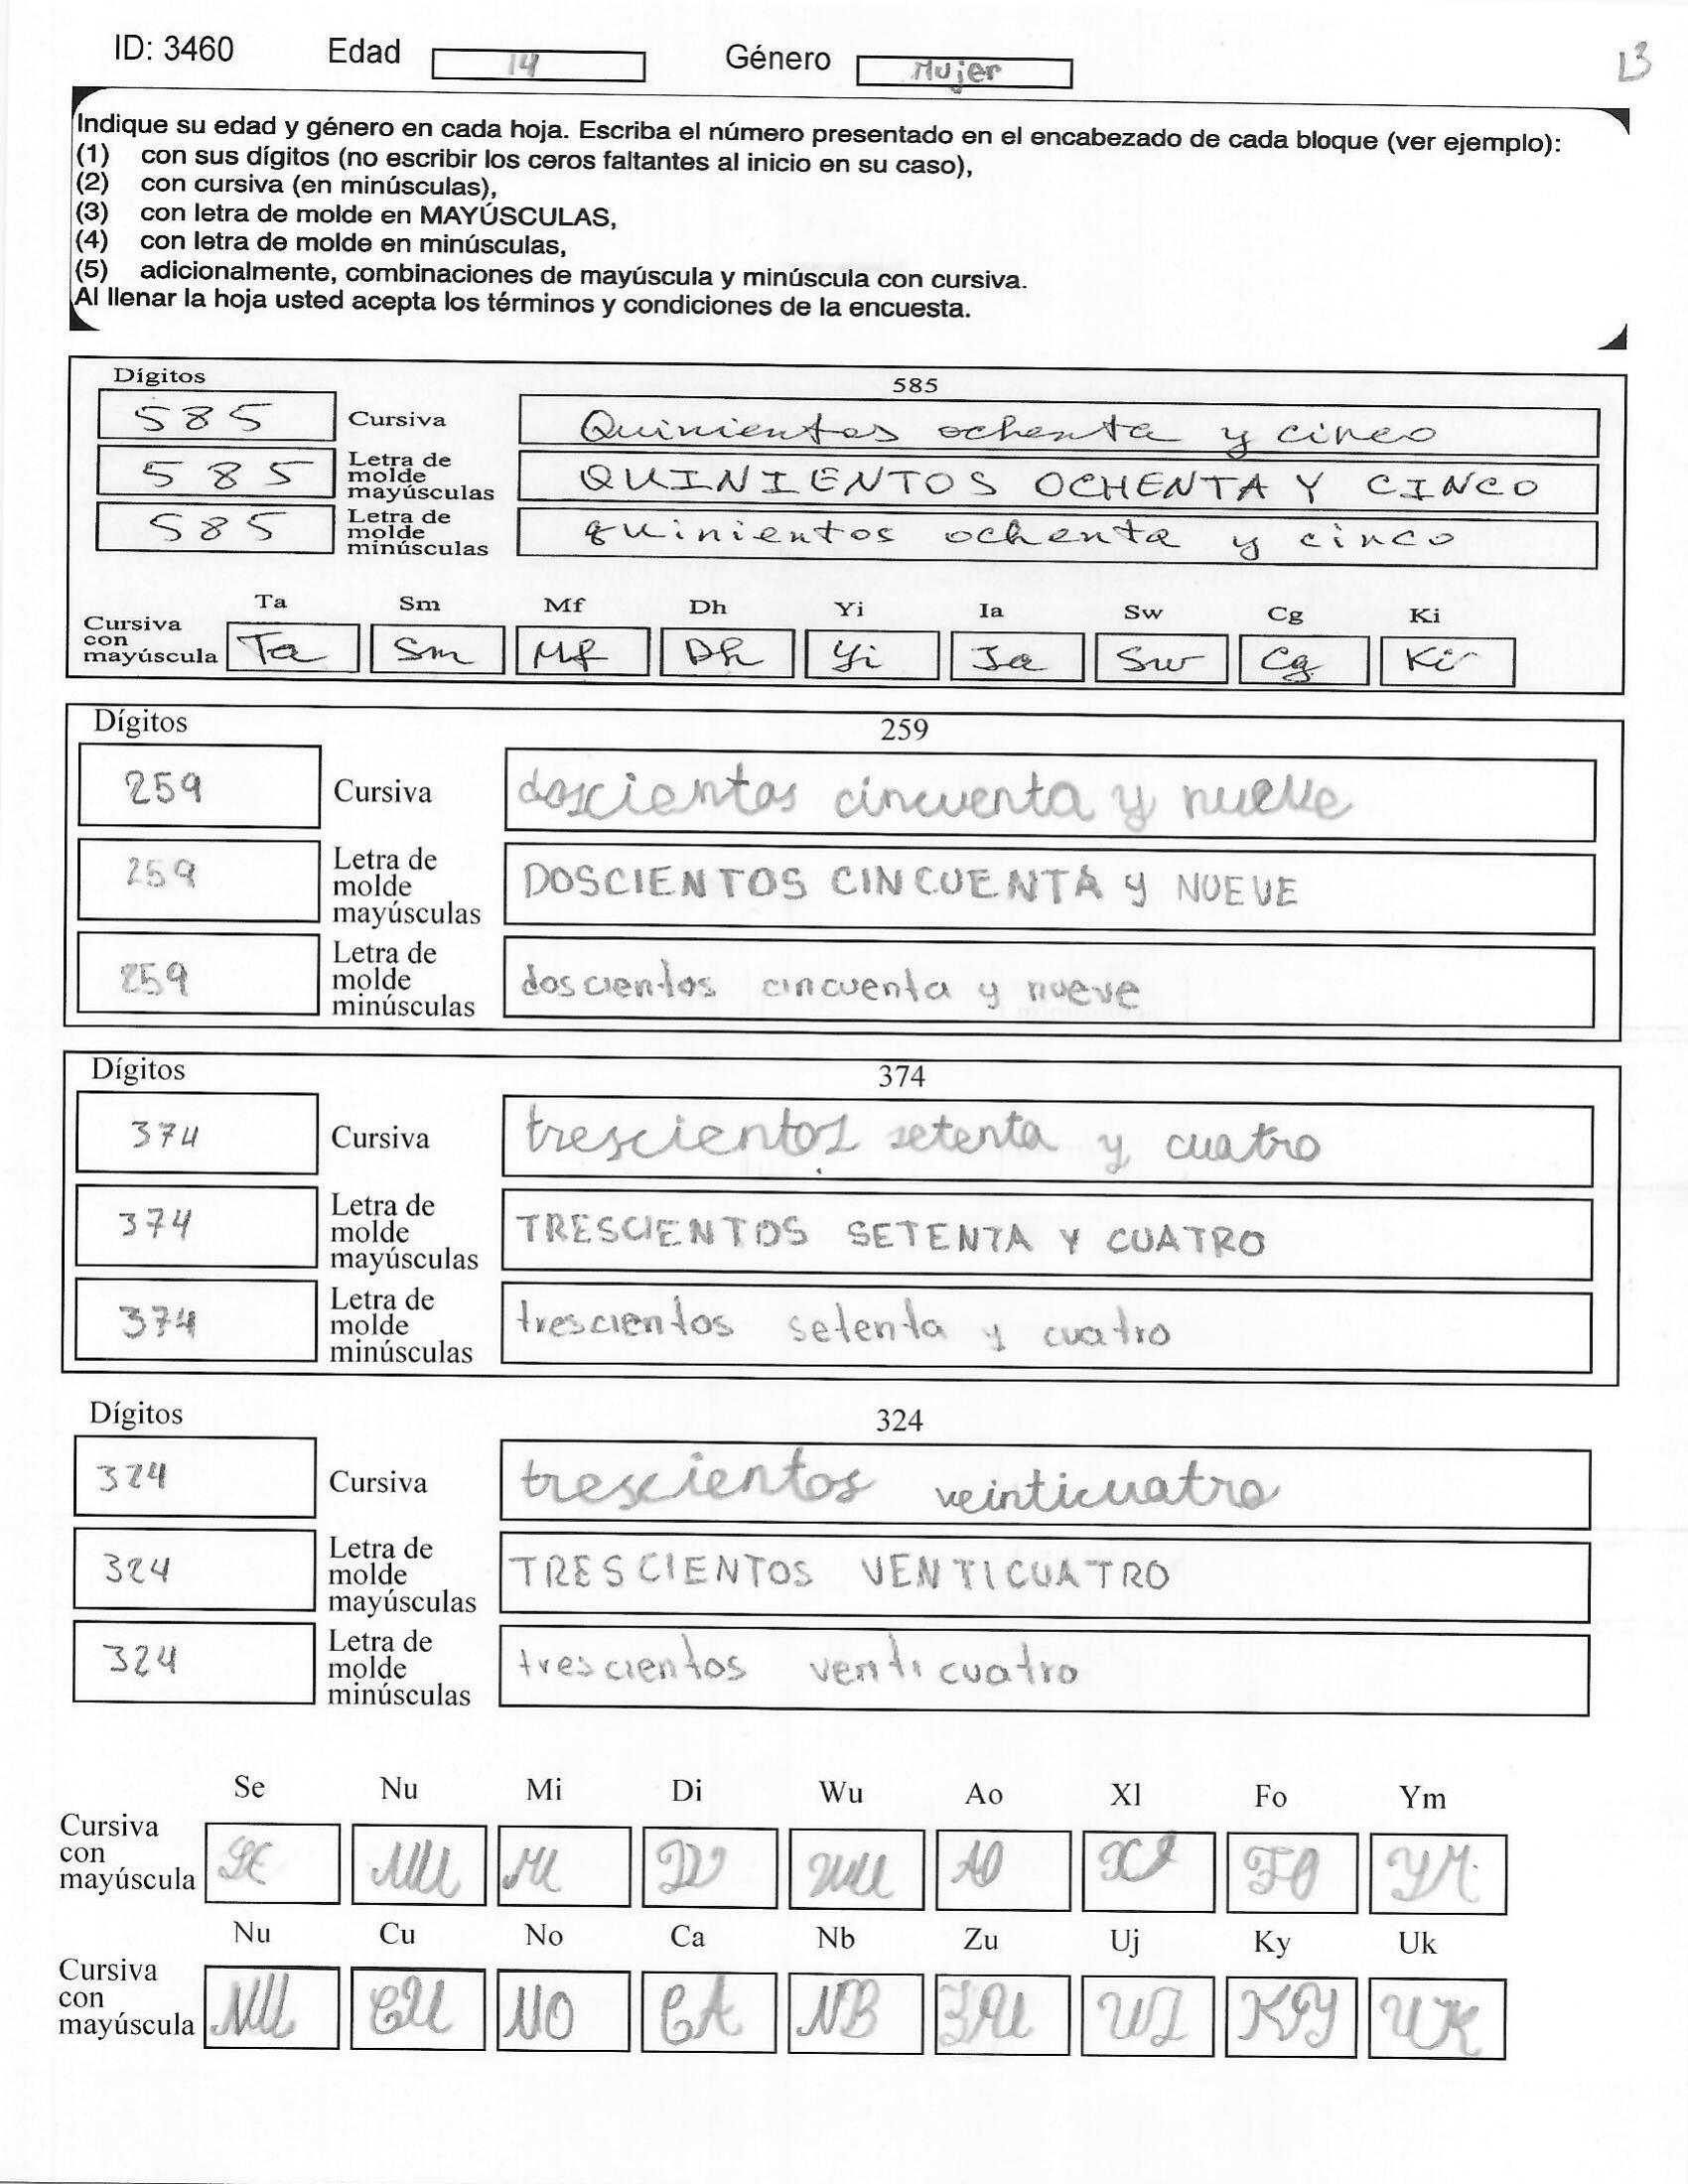 ID: 3460 Edad 14 Género Mujer 13
Indique su edad y género en cada hoja. Escriba el número presentado en el encabezado de cada bloque (ver ejemplo):
(1) con sus dígitos (no escribir los ceros faltantes al inicio en su caso),
(2) con cursiva (en minúsculas),
(3) con letra de molde en MAYÚSCULAS,
(4) con letra de molde en minúsculas,
(5) adicionalmente, combinaciones de mayúscula y minúscula con cursiva.
Al llenar la hoja usted acepta los términos y condiciones de la encuesta.
Dígitos 585
585 Cursiva Quinientos ochenta y cinco
585 Letra de molde mayúsculas QUINIENTOS OCHENTA Y CINCO
585 Letra de molde minúsculas quinientos ochenta y cinco
Ta Sm Mf Dh Yi Ia Sw Cg Ki
Cursiva con mayúscula Ta Sm Mf Dh Yi Ia Sw Cg Ki
Dígitos 259
259 Cursiva doscientos cincuenta y nueve
259 Letra de molde mayúsculas DOSCIENTOS CINCUENTA y NUEVE
259 Letra de molde minúsculas doscientos cincuenta y nueve
Dígitos 374
374 Cursiva trescientos setenta y cuatro
374 Letra de molde mayúsculas TRESCIENTOS SETENTA Y CUATRO
374 Letra de molde minúsculas trescientos setenta y cuatro
Dígitos 324
324 Cursiva trescientos veinticuatro
324 Letra de molde mayúsculas TRESCIENTOS VENTICUATRO
324 Letra de molde minúsculas trescientos venticuatro
Se Nu Mi Di Wu Ao Xl Fo Ym
Cursiva con mayúscula SE NU MI DI WU AO Xl FO YM
Nu Cu No Ca Nb Zu Uj Ky Uk
Cursiva con mayúscula NU CU NO CA NB ZU UJ KY UK